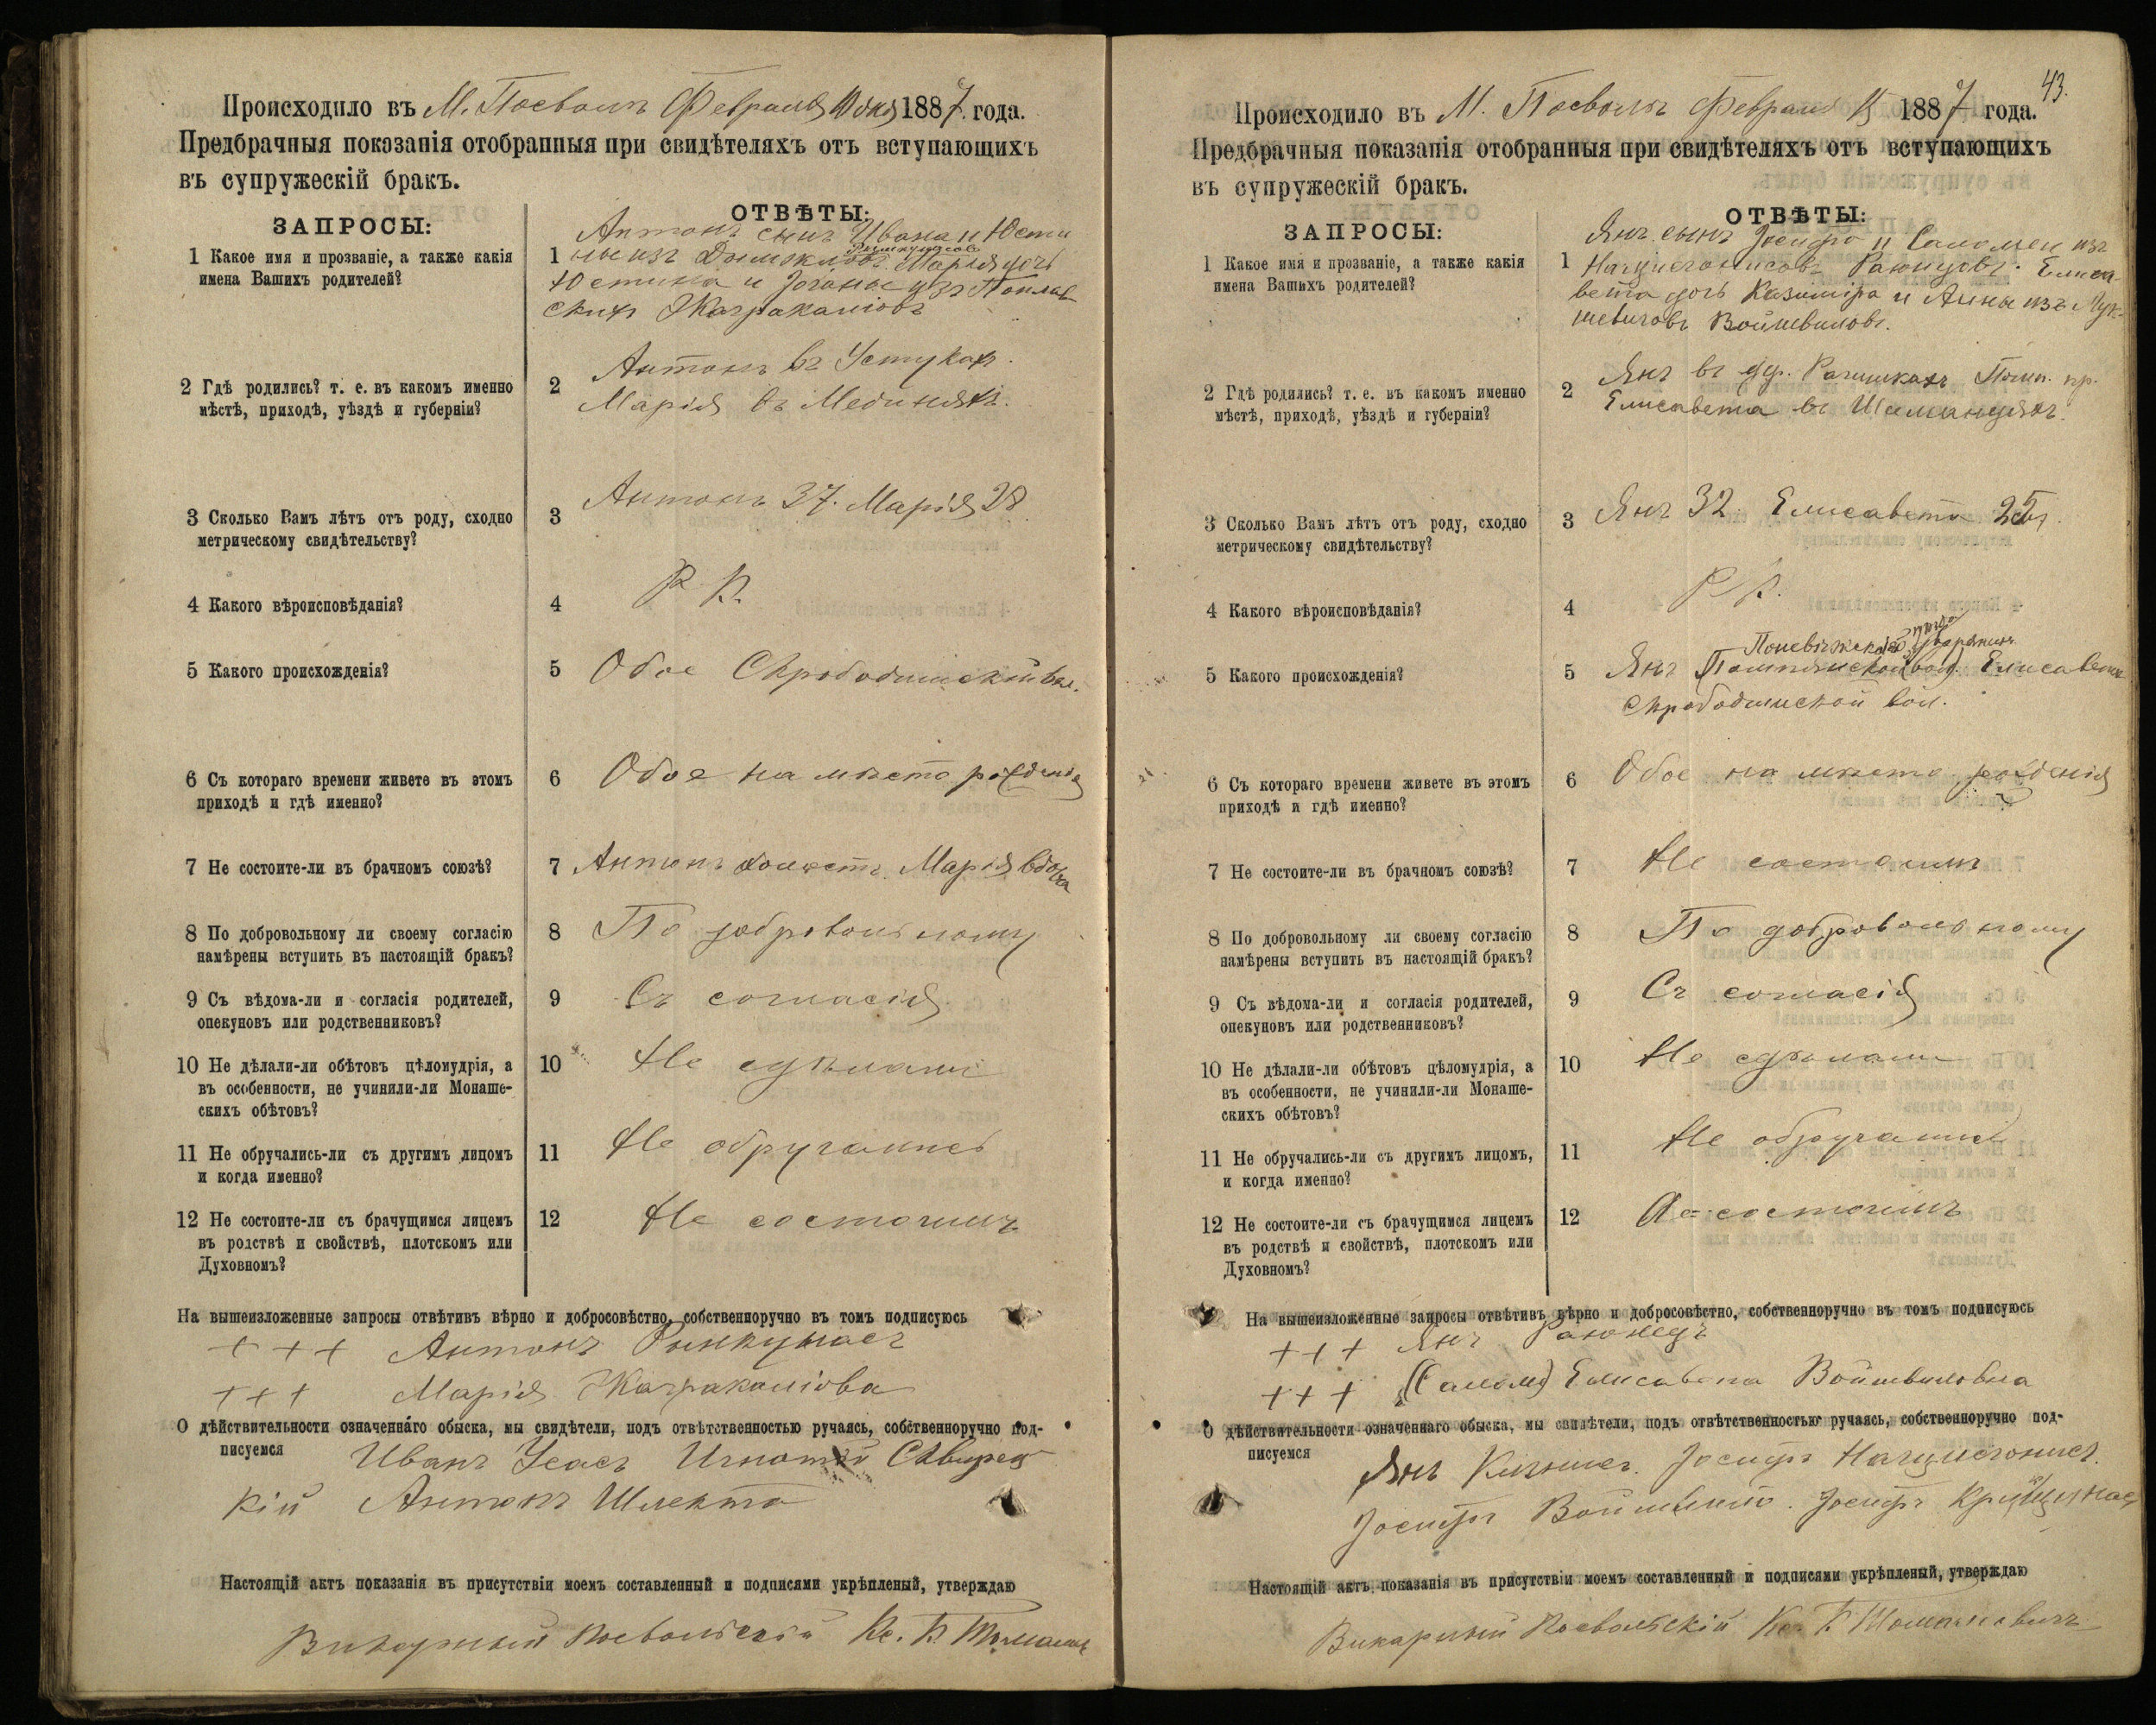 Происходило въ М. Посволь Февраля 10 дня 1887 года.
Предбрачныя показанія отобранныя при свидѣтеляхъ отъ вступающихъ
въ супружескій бракъ.
ЗАПРОСЫ:
ОТВѢТЫ:
1 Какое имя и прозваніе, а также какія
имена Вашихъ родителей?
1 Антонъ сынъ Ивана и Юсти
ны изъ Марія дочь
Юстина и Іоганы изъ Поплав
скихъ
2 Гдѣ родились? т. е. въ какомъ именно
мѣстѣ, приходѣ, уѣздѣ и губерніи?
2 Антонъ въ Устукахъ.
Марія въ
3 Сколько Вамъ лѣтъ отъ роду, сходно
метрическому свидѣтельству?
3 Антонъ 37. Марія 28
4 Какого вѣроисповѣданія?
4 Р. К.
5 Какого происхожденія?
5 Обое Скрободишской вол.
6 Съ котораго времени живете въ этомъ
приходѣ и гдѣ именно?
6 Обое на мѣсто рожденія
7 Не состоите-ли въ брачномъ союзѣ?
7 Антонъ холостъ. Марія вдова
8 По добровольному ли своему согласію
намѣрены вступить въ настоящій бракъ?
8 По добровольному
9 Съ вѣдома-ли и согласія родителей,
опекуновъ или родственниковъ?
9 Съ согласія
10 Не дѣлали-ли обѣтовъ цѣломудрія, а
въ особенности, не учинили-ли Монаше-
скихъ обѣтовъ?
10 Не сдѣлали
11 Не обручались-ли съ другимъ лицомъ
и когда именно?
11 Не обручались
12 Не состоите-ли съ брачущимся лицемъ
въ родствѣ и свойствѣ, плотскомъ или
Духовномъ?
12 Не состоимъ
На вышеизложенные запросы отвѣтивъ вѣрно и добросовѣстно, собственноручно въ томъ подписуюсь
+ + + Антонъ Рымкунасъ
+ + + Марія
О дѣйствительности означеннаго обыска, мы свидѣтели, подъ отвѣтственностью ручаясь, собственноручно под-
писуемся Иванъ Усасъ Игнатій Свирец
кій Антонъ Шлекта
Настоящій актъ показанія въ присутствіи моемъ составленный и подписями укрѣпленый, утверждаю
Викарный Посвольскій Кс. Б.
43.
Происходило въ М. Посволь Февраля 15 1887 года.
Предбрачныя показанія отобранныя при свидѣтеляхъ отъ вступающихъ
въ супружескій бракъ.
ЗАПРОСЫ:
ОТВѢТЫ:
1 Какое имя и прозваніе, а также какія
имена Вашихъ родителей?
1 Янъ сынъ Іосифа и Саломеи изъ
Раюнцовъ. Елиса-
вета дочь Казиміра и Анны изъ Мук-
шевичовъ Войшвиловъ.
2 Гдѣ родились? т. е. въ какомъ именно
мѣстѣ, приходѣ, уѣздѣ и губерніи?
2 Янъ въ дер. Помп. пр.
Елисавета въ
3 Сколько Вамъ лѣтъ отъ роду, сходно
метрическому свидѣтельству?
3 Янъ 32. Елисавета 25
4 Какого вѣроисповѣданія?
4 Р. К.
5 Какого происхожденія?
Поневѣжскаго уѣзда дворянинъ
5 Янъ (Помпянской вол). Елисавета
Скрободишской вол.
6 Съ котораго времени живете въ этомъ
приходѣ и гдѣ именно?
6 Обое на мѣсто рожденія
7 Не состоите-ли въ брачномъ союзѣ?
7 Не состоимъ
8 По добровольному ли своему согласію
намѣрены вступить въ настоящій бракъ?
8 По добровольному
9 Съ вѣдома-ли и согласія родителей,
опекуновъ или родственниковъ?
9 Съ согласія
10 Не дѣлали-ли обѣтовъ цѣломудрія, а
въ особенности, не учинили-ли Монаше-
скихъ обѣтовъ?
10 Не сдѣлали
11 Не обручались-ли съ другимъ лицомъ,
и когда именно?
11 Не обручались
12 Не состоите-ли съ брачущимся лицемъ
въ родствѣ и свойствѣ, плотскомъ или
Духовномъ?
12 Не состоимъ
На вышеизложенные запросы отвѣтивъ вѣрно и добросовѣстно, собственноручно въ томъ подписуюсь
+ + + Янъ Раюнецъ
+ + + (Салом) Елисавета Войшвиловна
О дѣйствительности означеннаго обыска, мы свидѣтели, подъ отвѣтственностью ручаясь, собственноручно под-
писуемся Янъ Іосифъ
Іосифъ Войшвило. Іосифъ
Настоящій актъ показанія въ присутствіи моемъ составленный и подписями укрѣпленый, утверждаю
Викарный Посвольскій Кс. Б.